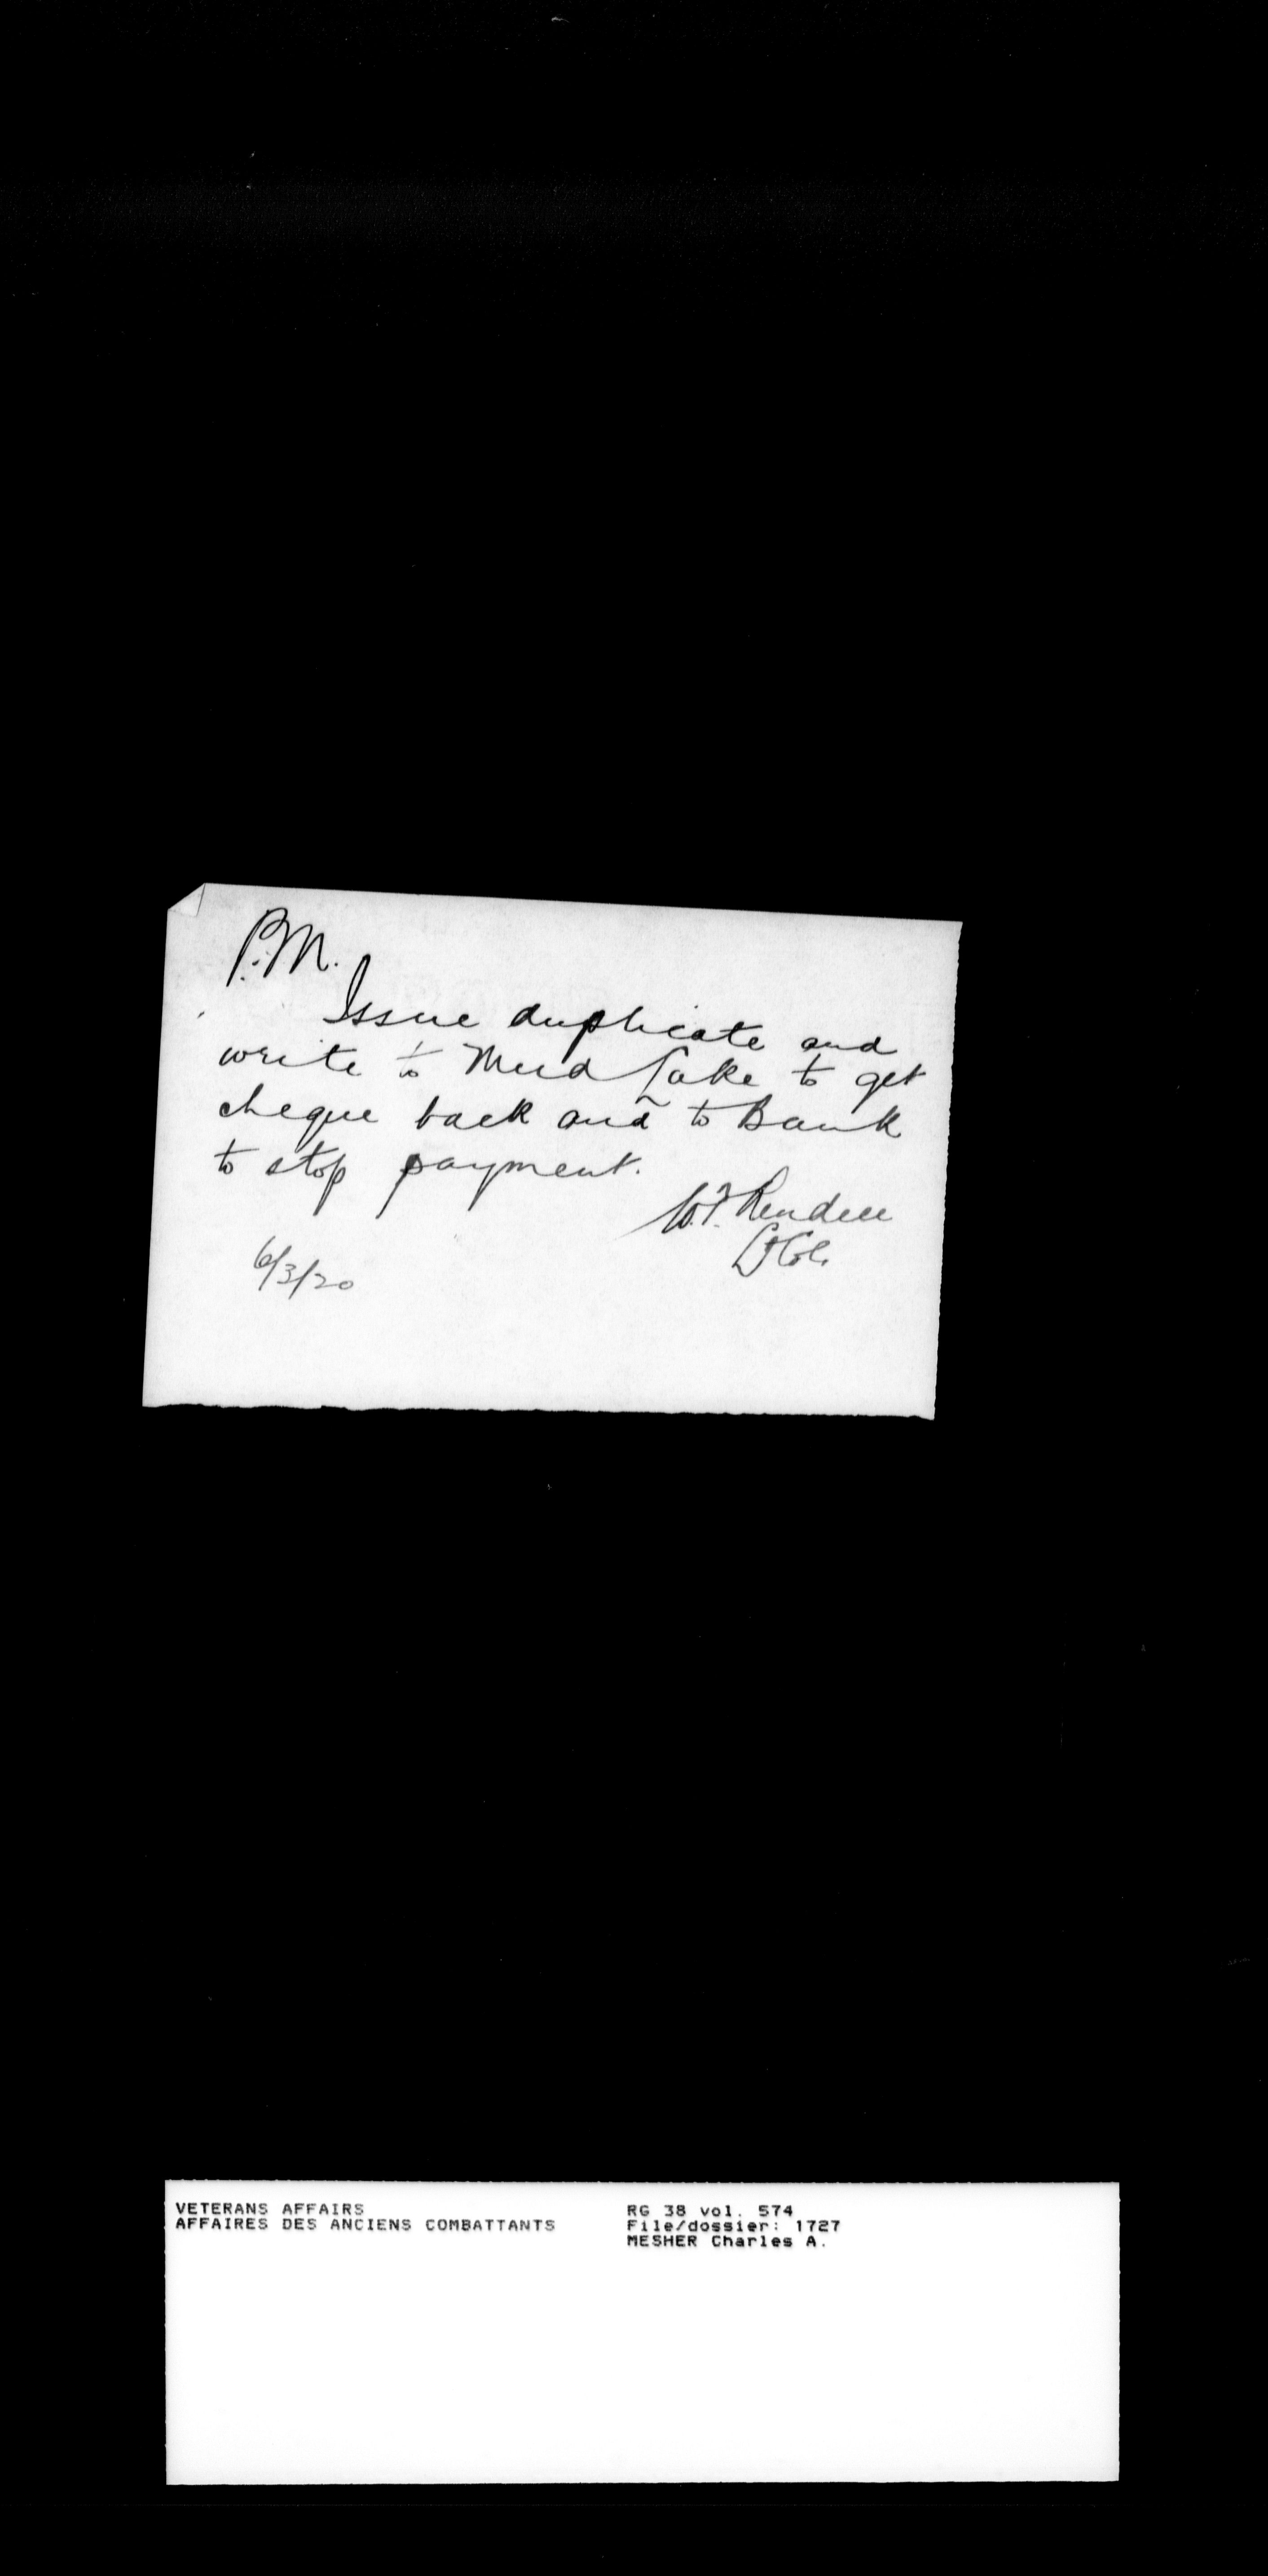 P.M.
Issue duplicate and
write to Mud Lake to get
cheque back and to Bank
to stop payment.
W.F. Rendell
Lt Col.
6/3/20
VETERANS AFFAIRS
AFFAIRES DES ANCIENS COMBATTANTS
RG 38 vol. 574
File/dossier: 1727
MESHER Charles A.